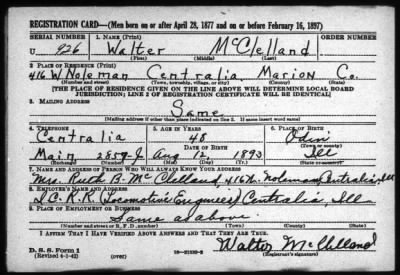 REGISTRATION CARD—(Men born on or after April 28, 1877 and on or before February 16, 1897)
SERIAL NUMBER 1. NAME (Print) ORDER NUMBER
U 926 Walter McClelland
(First) (Middle) (Last)
2. PLACE OF RESIDENCE (Print)
416 W Noleman Centralia Marion Co.
(Number and street) (Town, township, village, or city) (County) (State)
[THE PLACE OF RESIDENCE GIVEN ON THE LINE ABOVE WILL DETERMINE LOCAL BOARD
JURISDICTION; LINE 2 OF REGISTRATION CERTIFICATE WILL BE IDENTICAL]
3. MAILING ADDRESS
Same
[Mailing address if other than place indicated on line 2. If same insert word same]
4. TELEPHONE 5. AGE IN YEARS 6. PLACE OF BIRTH
Centralia 48 Odin
DATE OF BIRTH (Town or county)
Main 2859-J Aug 12 1893 Ill
(Exchange) (Number) (Mo.) (Day) (Yr.) (State or country)
7. NAME AND ADDRESS OF PERSON WHO WILL ALWAYS KNOW YOUR ADDRESS
Mrs. Ruth B. McClelland, 416 W. Noleman, Centralia, Ill
8. EMPLOYER'S NAME AND ADDRESS
I.C.R.R. (Locomotive Engineer) Centralia, Ill
9. PLACE OF EMPLOYMENT OR BUSINESS
Same as above
(Number and street or R. F. D. number) (Town) (County) (State)
I AFFIRM THAT I HAVE VERIFIED ABOVE ANSWERS AND THAT THEY ARE TRUE.
Walter McClelland
D. S. S. Form 1
(Revised 4-1-42) (over) (Registrant's signature)